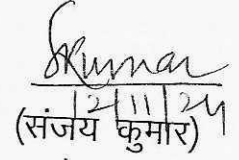 SKumar
12/11/24
(संजय कुमार)